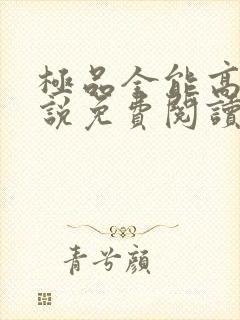 極品全能高
說免費閱讀
青兮顏